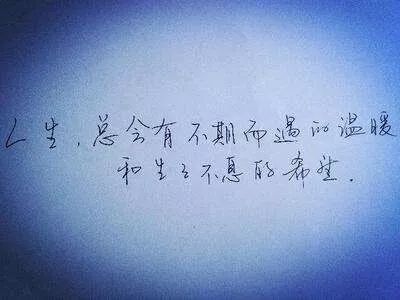 人生,总会有不期而遇的温暖
和生生不息的希望.